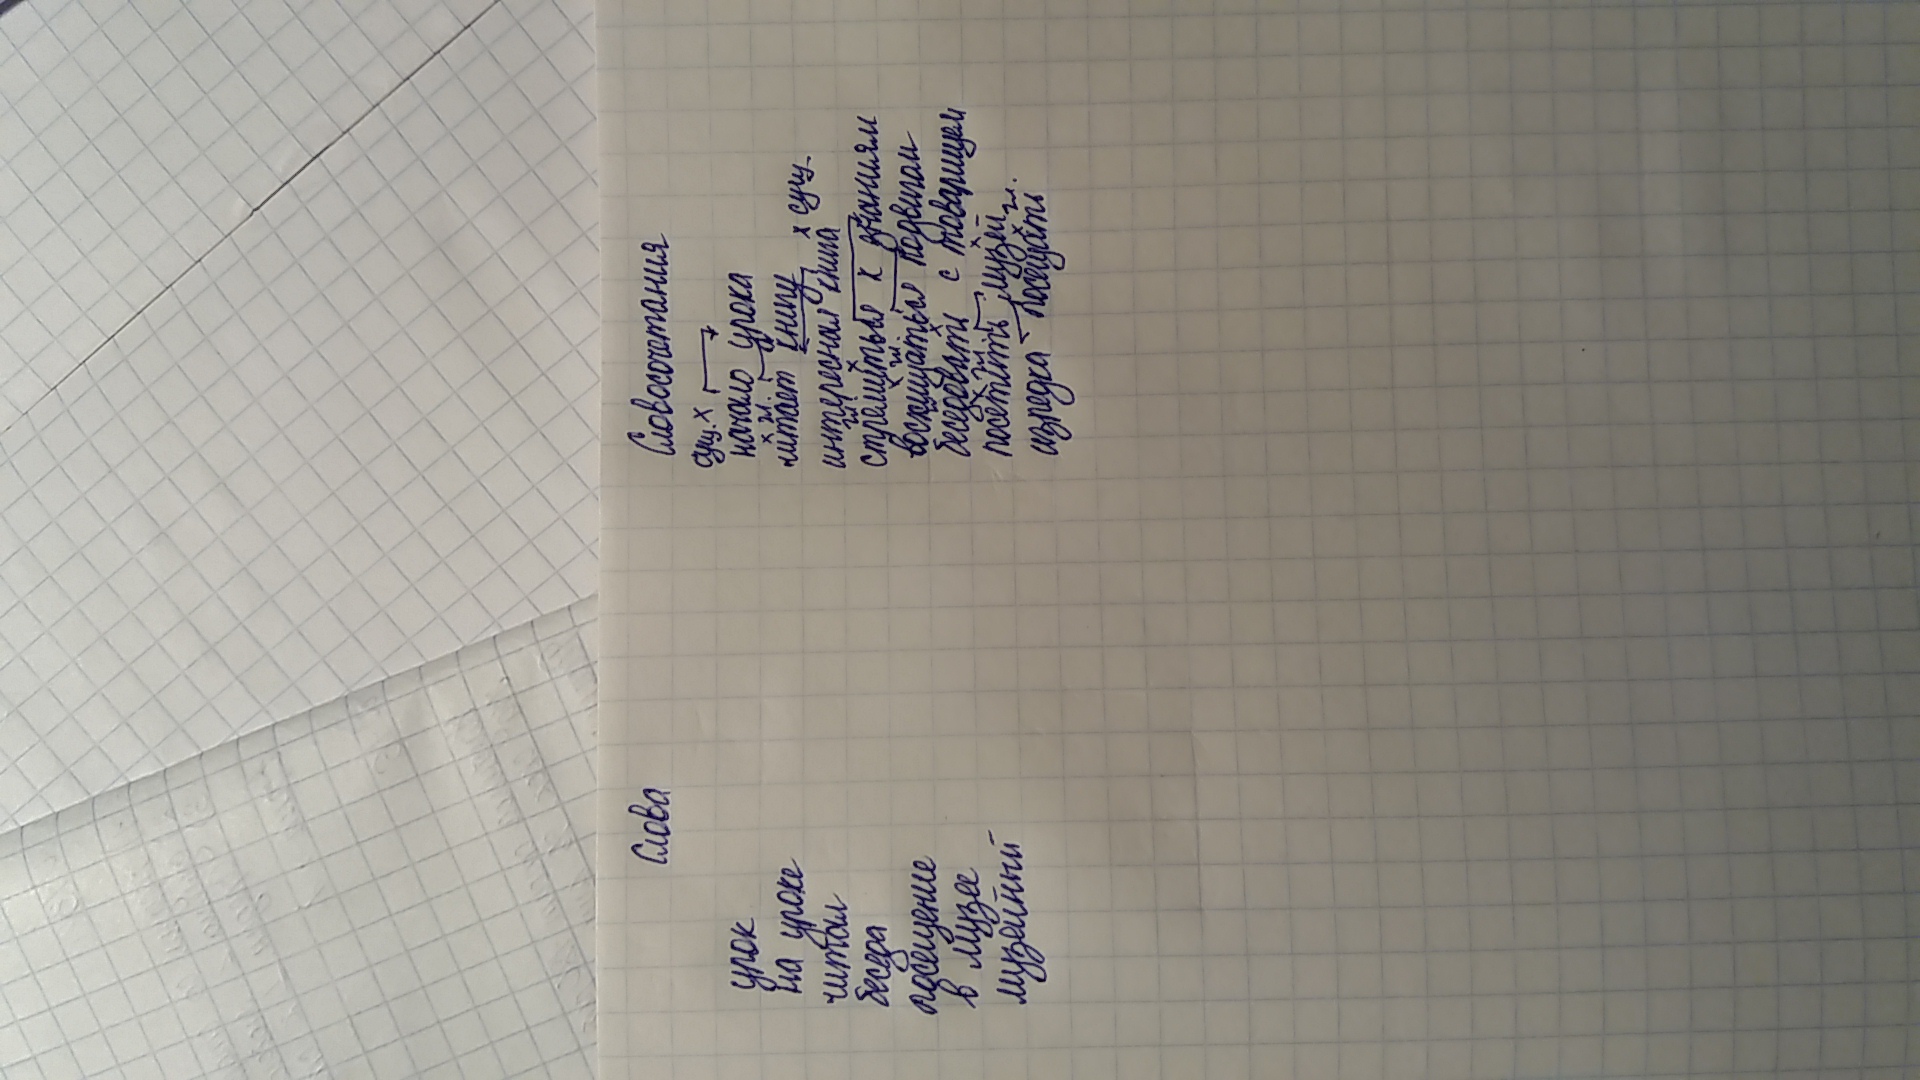 Слова
урок
на уроке
читал
беседа
посещение
в музее
музейный
Словосочетания
сущ. х
начало урока
х гл.
читает книгу
х сущ.
интересная книга
гл. х
стремиться к знаниям
х гл.
восхищаться подвигом
гл. х
беседовать с товарищем
х гл.
посетить музей
х гл.
изредка посещать